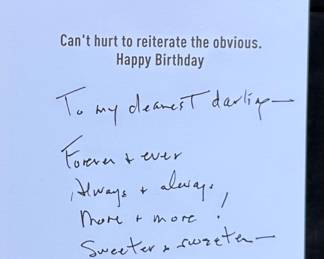 Can't hurt to reiterate the obvious.
Happy Birthday
To my dearest darling—
Forever + ever
Always + always,
More + more!
Sweeter + sweeter—